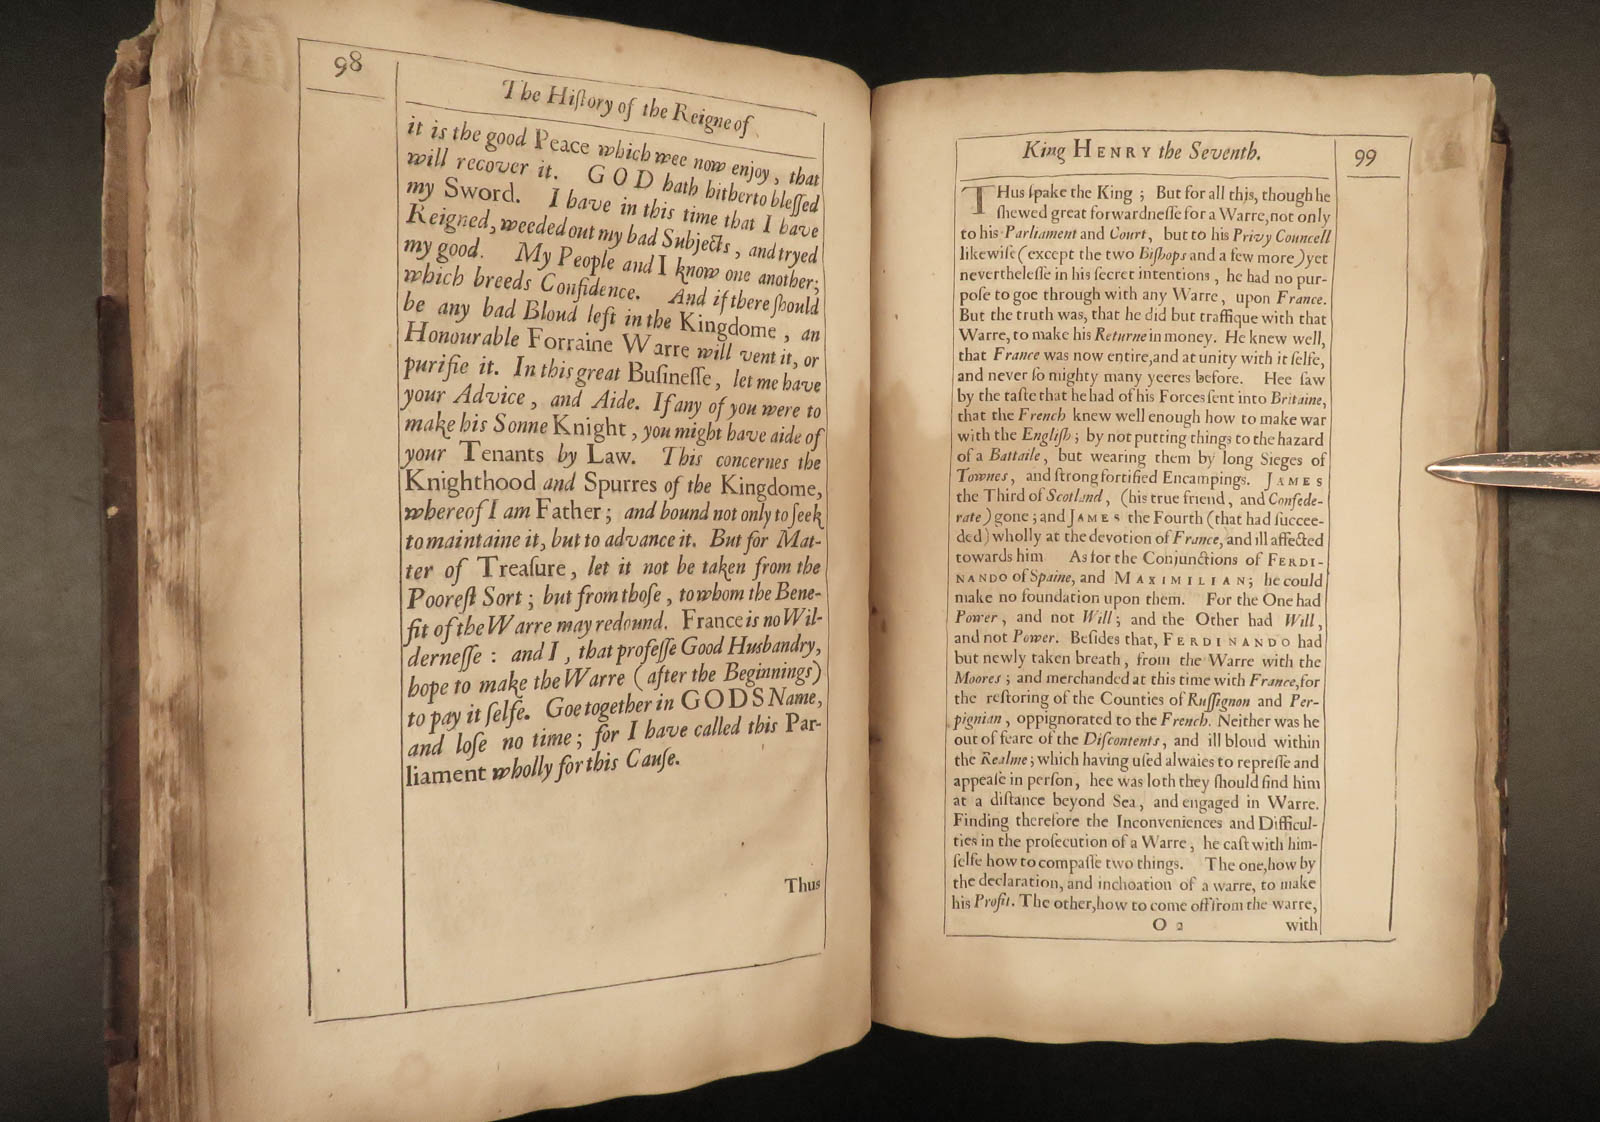 98
The Hiſtory of the Reigne of
it is the good Peace which wee now enjoy, that
will recover it. GOD hath hitherto bleſſed
my Sword. I have in this time that I have
Reigned, weeded out my bad Subjects, and tryed
my good. My People and I know one another;
which breeds Confidence. And if there ſhould
be any bad Bloud left in the Kingdome, an
Honourable Forraine Warre will vent it, or
purifie it. In this great Buſineſſe, let me have
your Advice, and Aide. If any of you were to
make his Sonne Knight, you might have aide of
your Tenants by Law. This concernes the
Knighthood and Spurres of the Kingdome,
whereof I am Father; and bound not only to ſeek
to maintaine it, but to advance it. But for Mat-
ter of Treaſure, let it not be taken from the
Pooreſt Sort; but from thoſe, to whom the Bene-
fit of the Warre may redound. France is no Wil-
derneſſe: and I, that profeſſe Good Husbandry,
hope to make the Warre (after the Beginnings)
to pay it ſelfe. Goe together in GODS Name,
and loſe no time; for I have called this Par-
liament wholly for this Cauſe.
Thus
King HENRY the Seventh.
99
THus ſpake the King; But for all this, though he
ſhewed great forwardneſſe for a Warre, not only
to his Parliament and Court, but to his Privy Councell
likewiſe (except the two Biſhops and a few more) yet
nevertheleſſe in his ſecret intentions, he had no pur-
poſe to goe through with any Warre, upon France.
But the truth was, that he did but traffique with that
Warre, to make his Returne in money. He knew well,
that France was now entire, and at unity with it ſelfe,
and never ſo mighty many yeeres before. Hee ſaw
by the taſte that he had of his Forces ſent into Britaine,
that the French knew well enough how to make war
with the Engliſh; by not putting things to the hazard
of a Battaile, but wearing them by long Sieges of
Townes, and ſtrong fortified Encampings. JAMES
the Third of Scotland, (his true friend, and Confede-
rate) gone; and JAMES the Fourth (that had ſuccee-
ded) wholly at the devotion of France, and ill affected
towards him As for the Conjunctions of FERDI-
NANDO of Spaine, and MAXIMILIAN; he could
make no foundation upon them. For the One had
Power, and not Will; and the Other had Will,
and not Power. Beſides that, FERDINANDO had
but newly taken breath, from the Warre with the
Moores; and merchanded at this time with France, for
the reſtoring of the Counties of Ruſſignon and Per-
pignian, oppignorated to the French. Neither was he
out of feare of the Diſcontents, and ill bloud within
the Realme; which having uſed alwaies to repreſſe and
appeaſe in perſon, hee was loth they ſhould find him
at a diſtance beyond Sea, and engaged in Warre.
Finding therefore the Inconveniences and Difficul-
ties in the proſecution of a Warre, he caſt with him-
ſelfe how to compaſſe two things. The one, how by
the declaration, and inchoation of a warre, to make
his Profit. The other, how to come off from the warre,
O 2 with